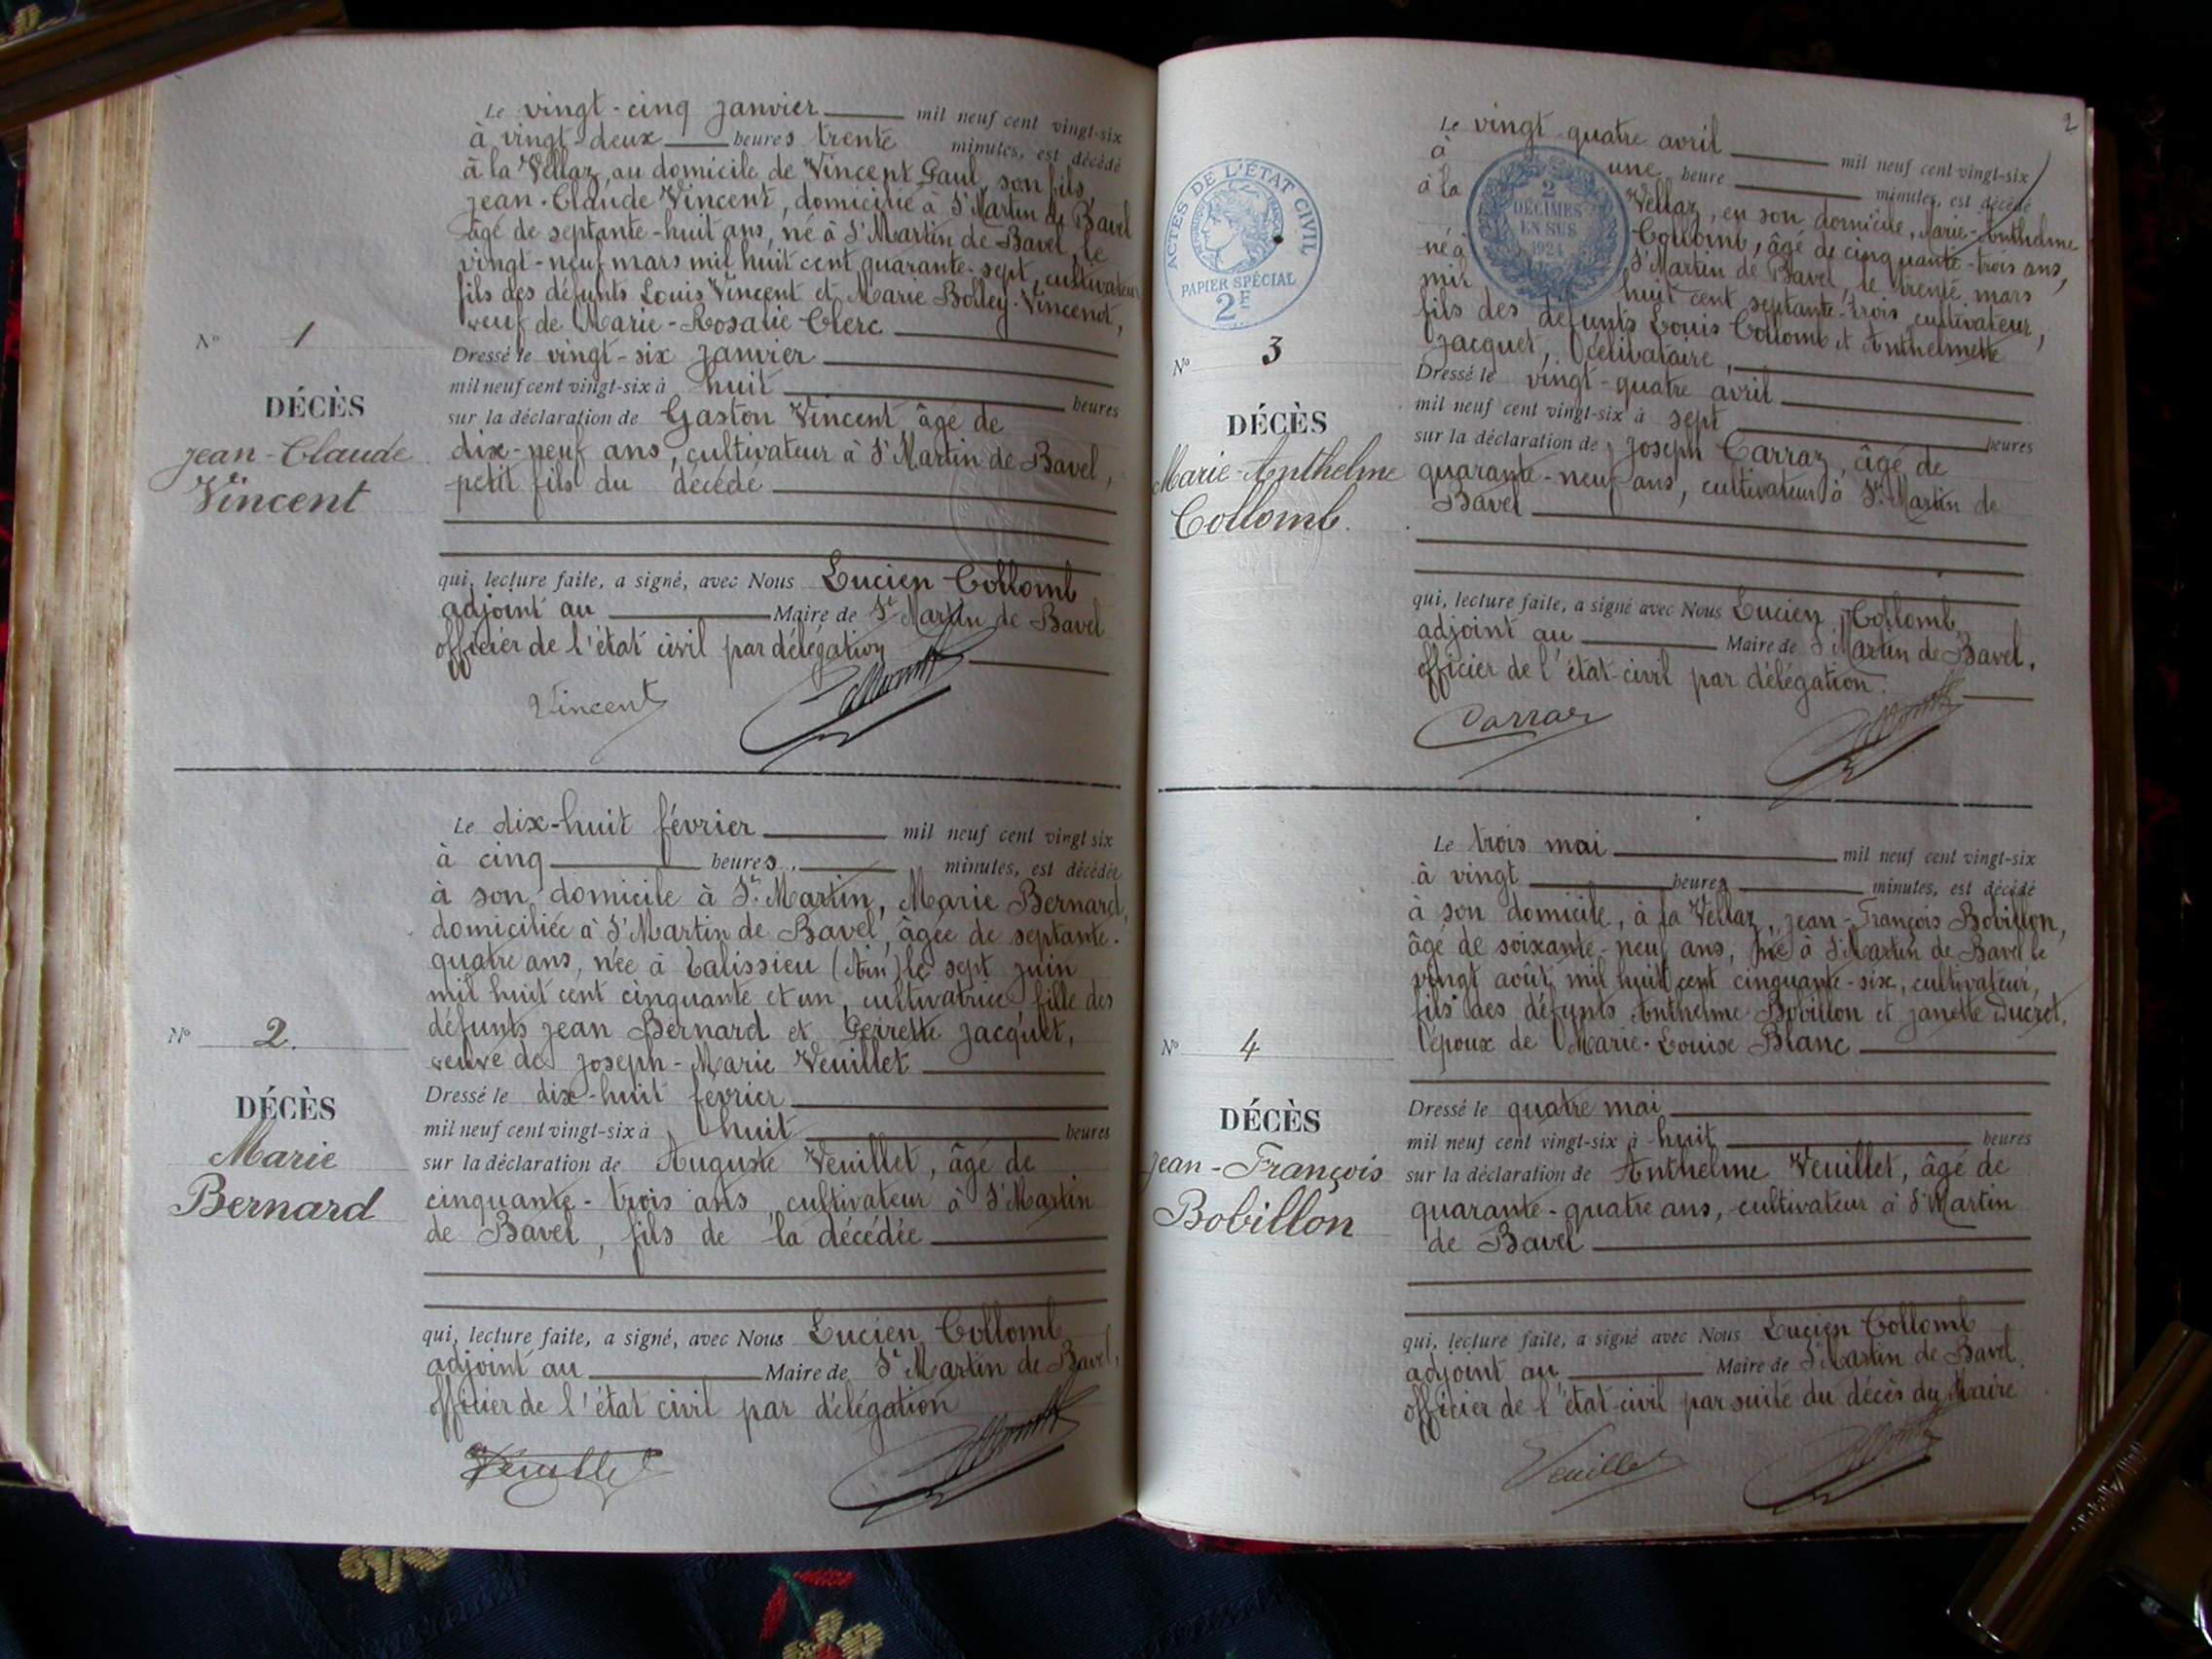 Le vingt-cinq janvier mil neuf cent vingt-six
à vingt-deux heures trente minutes, est décédé
à la Vellaz, au domicile de Vincent Paul, son fils,
Jean-Claude Vincent, domicilié à St Martin de Bavel
âgé de septante-huit ans, né à St Martin de Bavel, le
vingt-neuf mars mil huit cent quarante-sept, cultivateur
fils des défunts Louis Vincent et Marie Bolley-Vincent,
veuf de Marie-Rosalie Clerc
Dressé le vingt-six janvier
mil neuf cent vingt-six à huit heures
sur la déclaration de Gaston Vincent âgé de
dix-neuf ans, cultivateur à St Martin de Bavel,
petit fils du décédé
qui, lecture faite, a signé, avec Nous Lucien Collomb
adjoint au Maire de St Martin de Bavel
officier de l'état civil par délégation
Vincent Collomb
N° 1
DÉCÈS
Jean-Claude
Vincent
Le dix-huit février mil neuf cent vingt six
à cinq heures minutes, est décédée
à son domicile à St Martin, Marie Bernard,
domiciliée à St Martin de Bavel, âgée de septante-
quatre ans, née à Talissieu (Ain) le sept juin
mil huit cent cinquante et un, cultivatrice fille des
défunts Jean Bernard et Perrette Jacquet,
veuve de Joseph-Marie Veuillet
Dressé le dix-huit février
mil neuf cent vingt-six à huit heures
sur la déclaration de Auguste Veuillet, âgé de
cinquante-trois ans cultivateur à St Martin
de Bavel, fils de la décédée
qui, lecture faite, a signé, avec Nous Lucien Collomb
adjoint au Maire de St Martin de Bavel,
officier de l'état civil par délégation
Veuillet Collomb
N° 2.
DÉCÈS
Marie
Bernard
2
ACTES DE L'ÉTAT CIVIL
PAPIER SPÉCIAL
2E
2
DÉCIMES
EN SUS
1924
Le vingt-quatre avril mil neuf cent vingt-six
à une heure minutes, est décédé
à la Vellaz, en son domicile, Marie-Anthelme
Collomb, âgé de cinquante-trois ans,
né à St Martin de Bavel, le trente mars
mil huit cent septante-trois cultivateur,
fils des défunts Louis Collomb et Anthelmette
Jacquet, célibataire,
Dressé le vingt-quatre avril
mil neuf cent vingt-six à sept heures
sur la déclaration de Joseph Carraz, âgé de
quarante-neuf ans, cultivateur à St Martin de
Bavel
qui, lecture faite, a signé avec Nous Lucien Collomb,
adjoint au Maire de St Martin de Bavel,
officier de l'état-civil par délégation.
Carraz Collomb
N° 3
DÉCÈS
Marie-Anthelme
Collomb.
Le trois mai mil neuf cent vingt-six
à vingt heures minutes, est décédé
à son domicile, à la Vellaz, Jean-François Bobillon,
âgé de soixante-neuf ans, né à St Martin de Bavel le
vingt août mil huit cent cinquante-six, cultivateur,
fils des défunts Anthelme Bobillon et Janette Ducret,
époux de Marie-Louise Blanc
Dressé le quatre mai
mil neuf cent vingt-six à huit heures
sur la déclaration de Anthelme Veuillet, âgé de
quarante-quatre ans, cultivateur à St Martin
de Bavel
qui, lecture faite, a signé avec Nous Lucien Collomb
adjoint au Maire de St Martin de Bavel,
officier de l'état-civil par suite du décès du Maire
Veuillet Collomb
N° 4
DÉCÈS
Jean-François
Bobillon